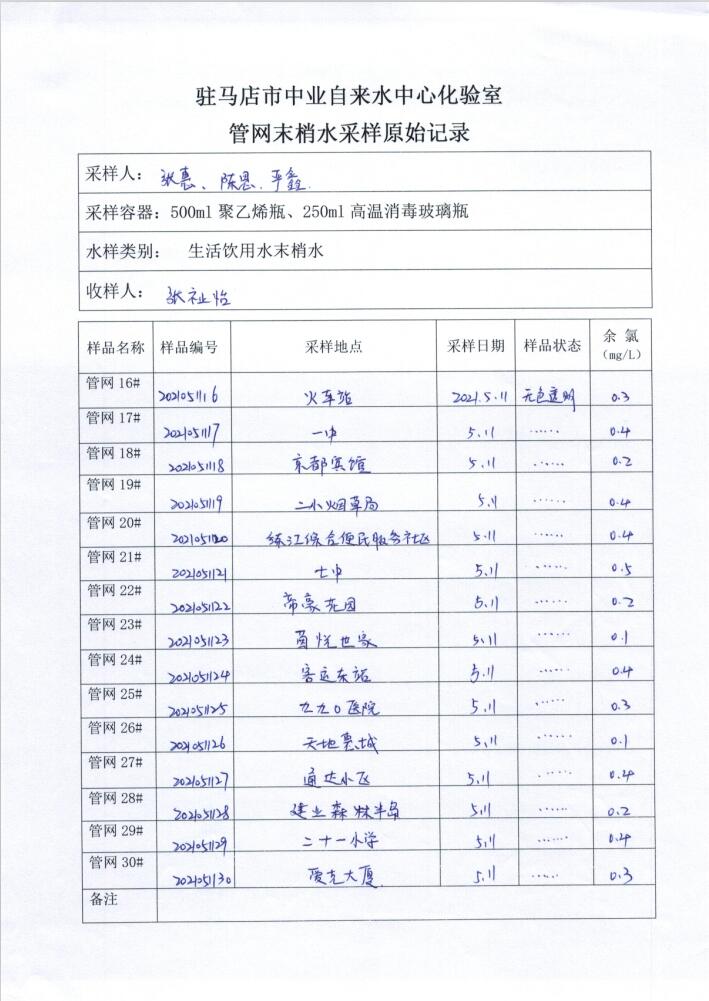 驻马店市中业自来水中心化验室
管网末梢水采样原始记录
采样人： 张惠、陈恩、平鑫
采样容器：500ml 聚乙烯瓶、250ml 高温消毒玻璃瓶
水样类别： 生活饮用水末梢水
收样人： 张祉怡
样品名称 样品编号 采样地点 采样日期 样品状态 余氯（mg/L）
管网 16# 2021051116 火车站 2021.5.11 无色透明 0.3
管网 17# 2021051117 一中 5.11 …… 0.4
管网 18# 2021051118 京都宾馆 5.11 …… 0.2
管网 19# 2021051119 二小烟草局 5.11 …… 0.4
管网 20# 2021051120 练江综合便民服务社区 5.11 …… 0.4
管网 21# 2021051121 七中 5.11 …… 0.5
管网 22# 2021051122 帝豪花园 5.11 …… 0.2
管网 23# 2021051123 茵悦世家 5.11 …… 0.1
管网 24# 2021051124 客运东站 5.11 …… 0.4
管网 25# 2021051125 九九〇医院 5.11 …… 0.3
管网 26# 2021051126 天地惠城 5.11 …… 0.1
管网 27# 2021051127 通达小区 5.11 …… 0.4
管网 28# 2021051128 建业森林半岛 5.11 …… 0.2
管网 29# 2021051129 二十一小学 5.11 …… 0.4
管网 30# 2021051130 爱克大厦 5.11 …… 0.3
备注